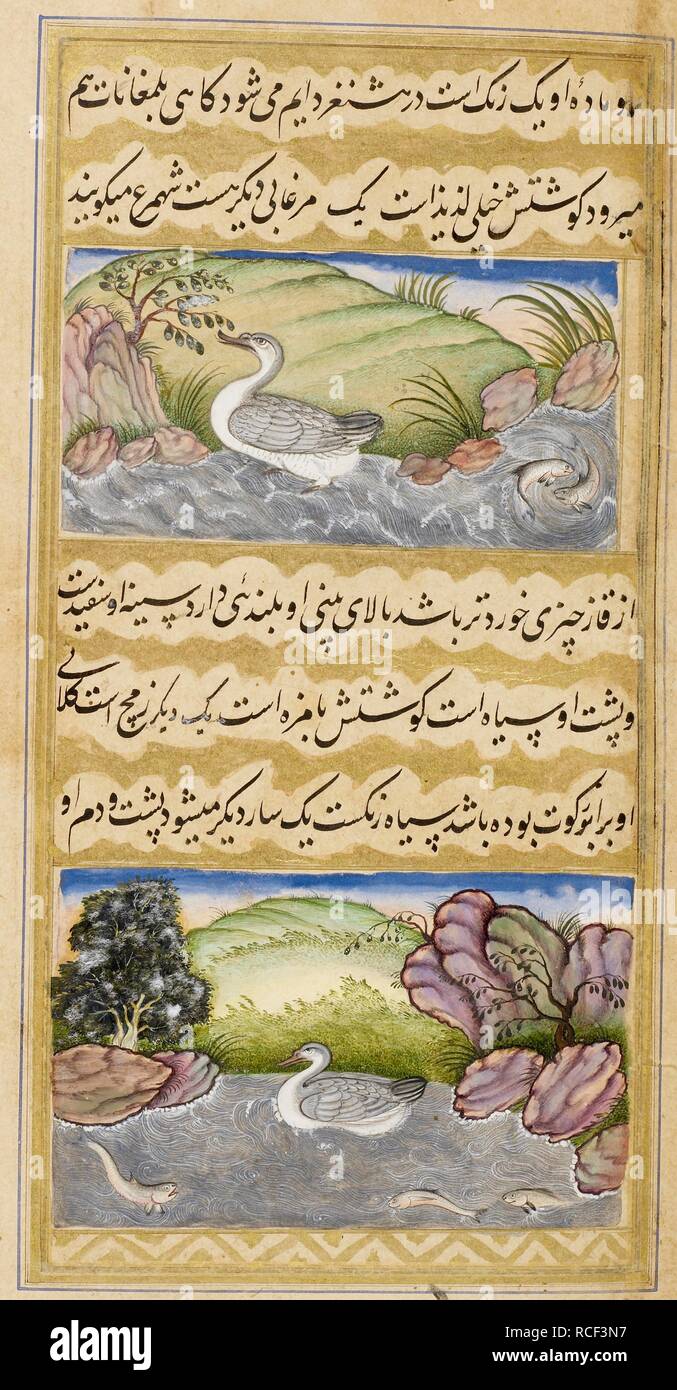 و مادهٔ او یک رنگ است در هشنغر دایم می شود کاهی بلمغانات هم
میرود کوشتش خیلی لذیذ است یک مرغابی دیکر هست شهمرغ میکویند
از قاز چیزی خوردتر باشد بالای بینی او بلندئی دارد سینه او سفیدست
و پشت او سیاه است کوشتش بامزه است یک دیکر زمج است کلانی
او برابر کوت بوده باشد سیاه رنکست یک سار دیکر میشود پشت و دم او
alamy
Image ID: RCF3N7
www.alamy.com